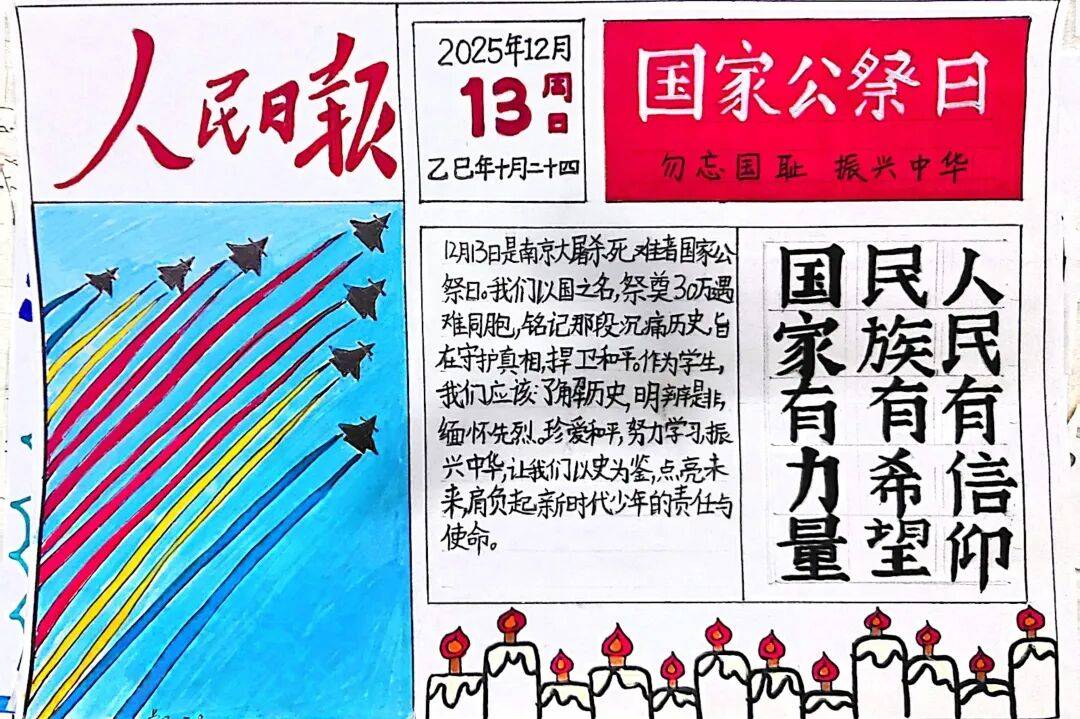 人民日报
2025年12月
13 周日
乙巳年十月二十四
国家公祭日
勿忘国耻 振兴中华
12月13日是南京大屠杀死难者国家公
祭日。我们以国之名,祭奠30万遇
难同胞,铭记那段沉痛历史,旨
在守护真相,捍卫和平。作为学生,
我们应该:了解历史,明辨是非,
缅怀先烈。珍爱和平,努力学习,振
兴中华,让我们以史为鉴,点亮未
来,肩负起新时代少年的责任与
使命。
人民有信仰
民族有希望
国家有力量